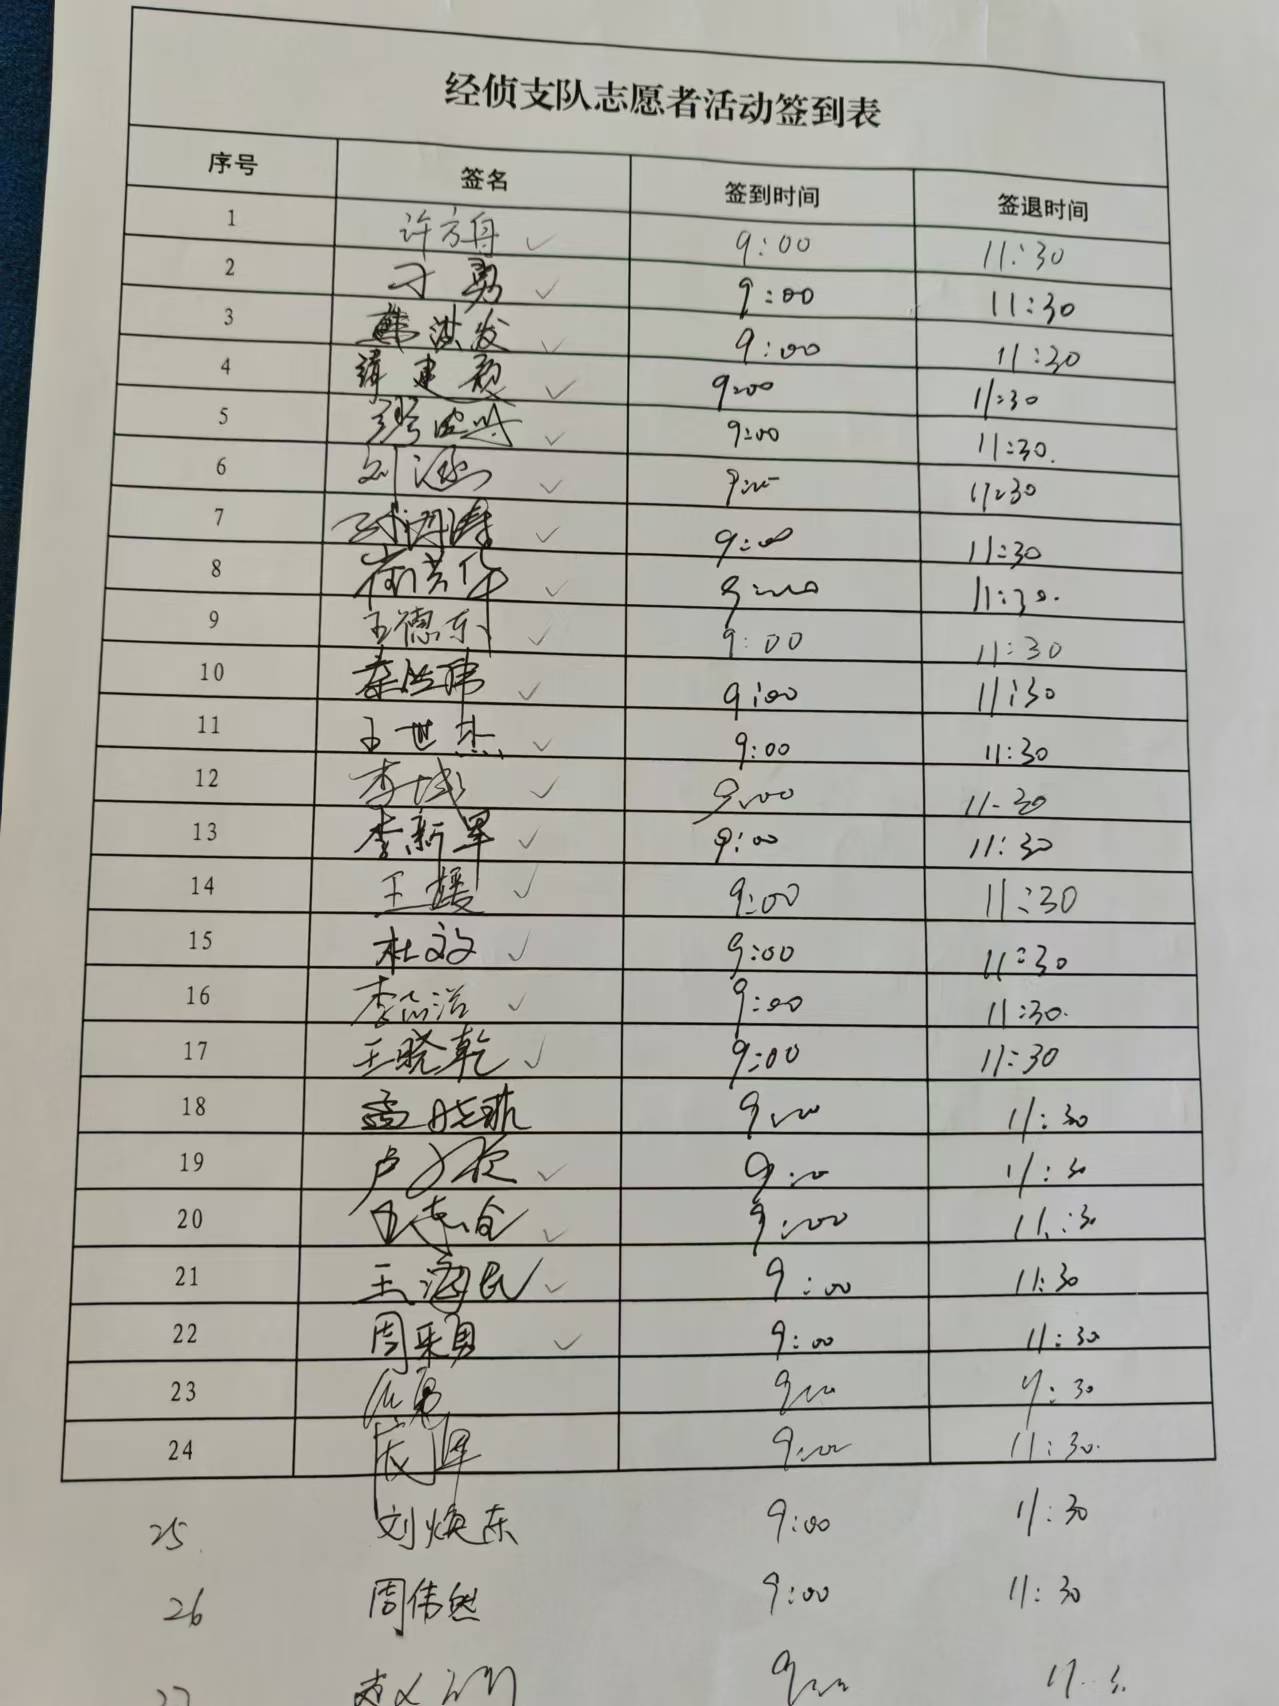 经侦支队志愿者活动签到表
序号 签名 签到时间 签退时间
1 许方舟 9:00 11:30
2 刁勇 9:00 11:30
3 洪发 9:00 11:30
4 建 9:00 11:30
5 9:00 11:30.
6 刘涵 9:00 11:30
7 9:00 11:30
8 9:00 11:30.
9 王德东 9:00 11:30
10 秦 玮 9:00 11:30
11 王世杰 9:00 11:30
12 李 9:00 11-30
13 李新军 9:00 11:30
14 王媛 9:00 11:30
15 杜文 9:00 11:30
16 李 浩 9:00 11:30.
17 王晓乾 9:00 11:30
18 孟晓琳 9:00 11:30
19 卢 9:00 11:30
20 王志 9:00 11:30
21 王海民 9:00 11:30
22 周采勇 9:00 11:30
23 9:00 11:30
24 9:00 11:30.
25. 刘焕东 9:00 11:30
26 周伟然 9:00 11:30
27 9:00